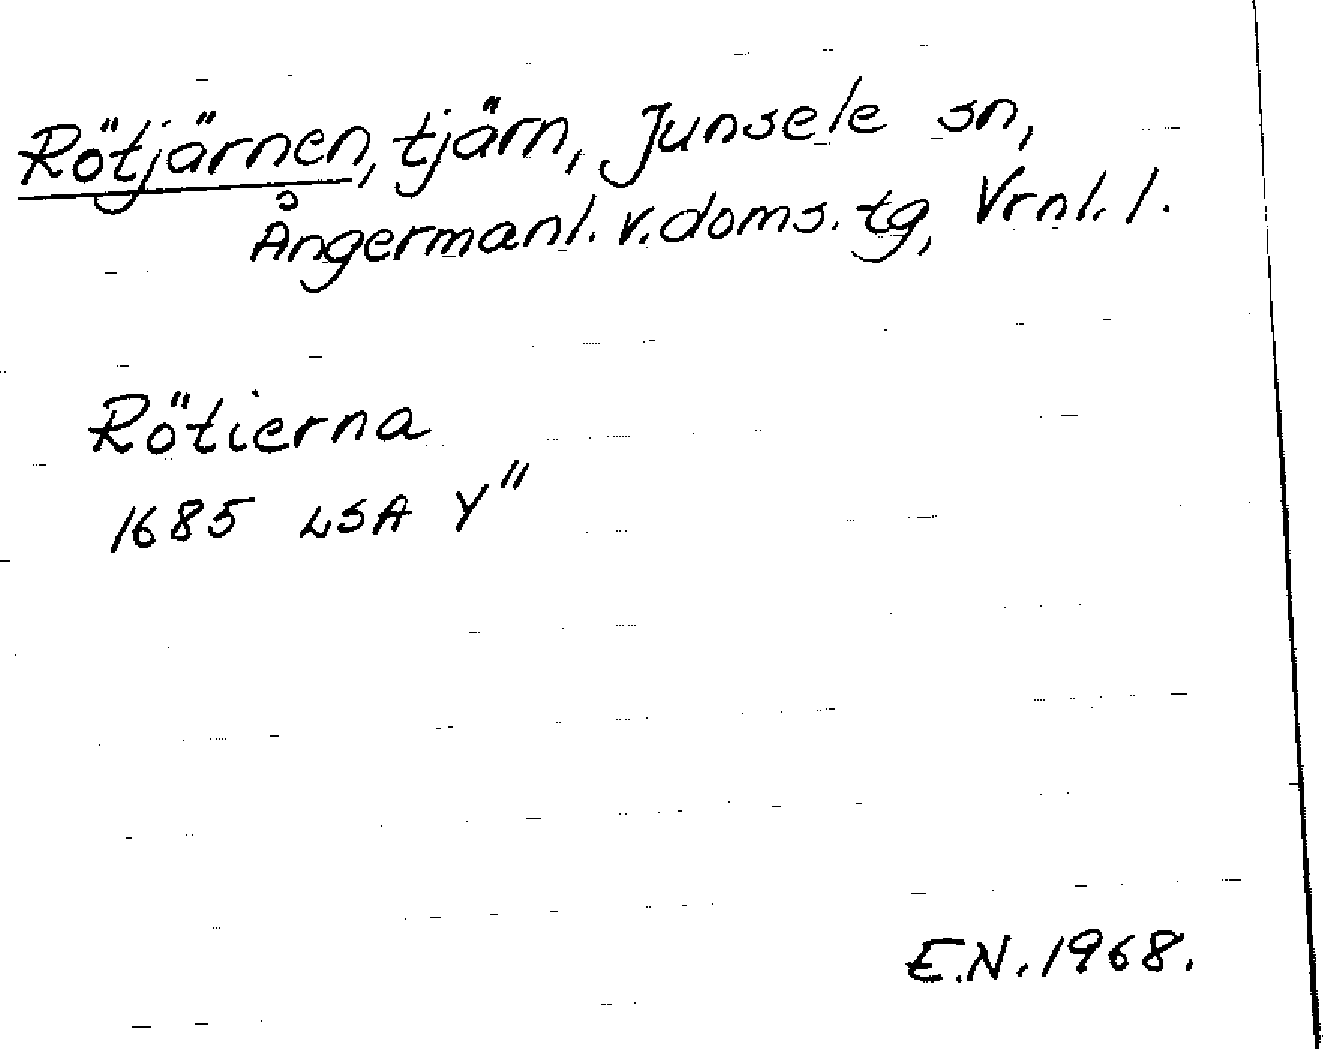 Rötjärnen, tjärn, Junsele sn,
Ångermanl. v. doms. tg, Vrnl. l.
Rötierna
1685 LSA Y"
E.N. 1968.